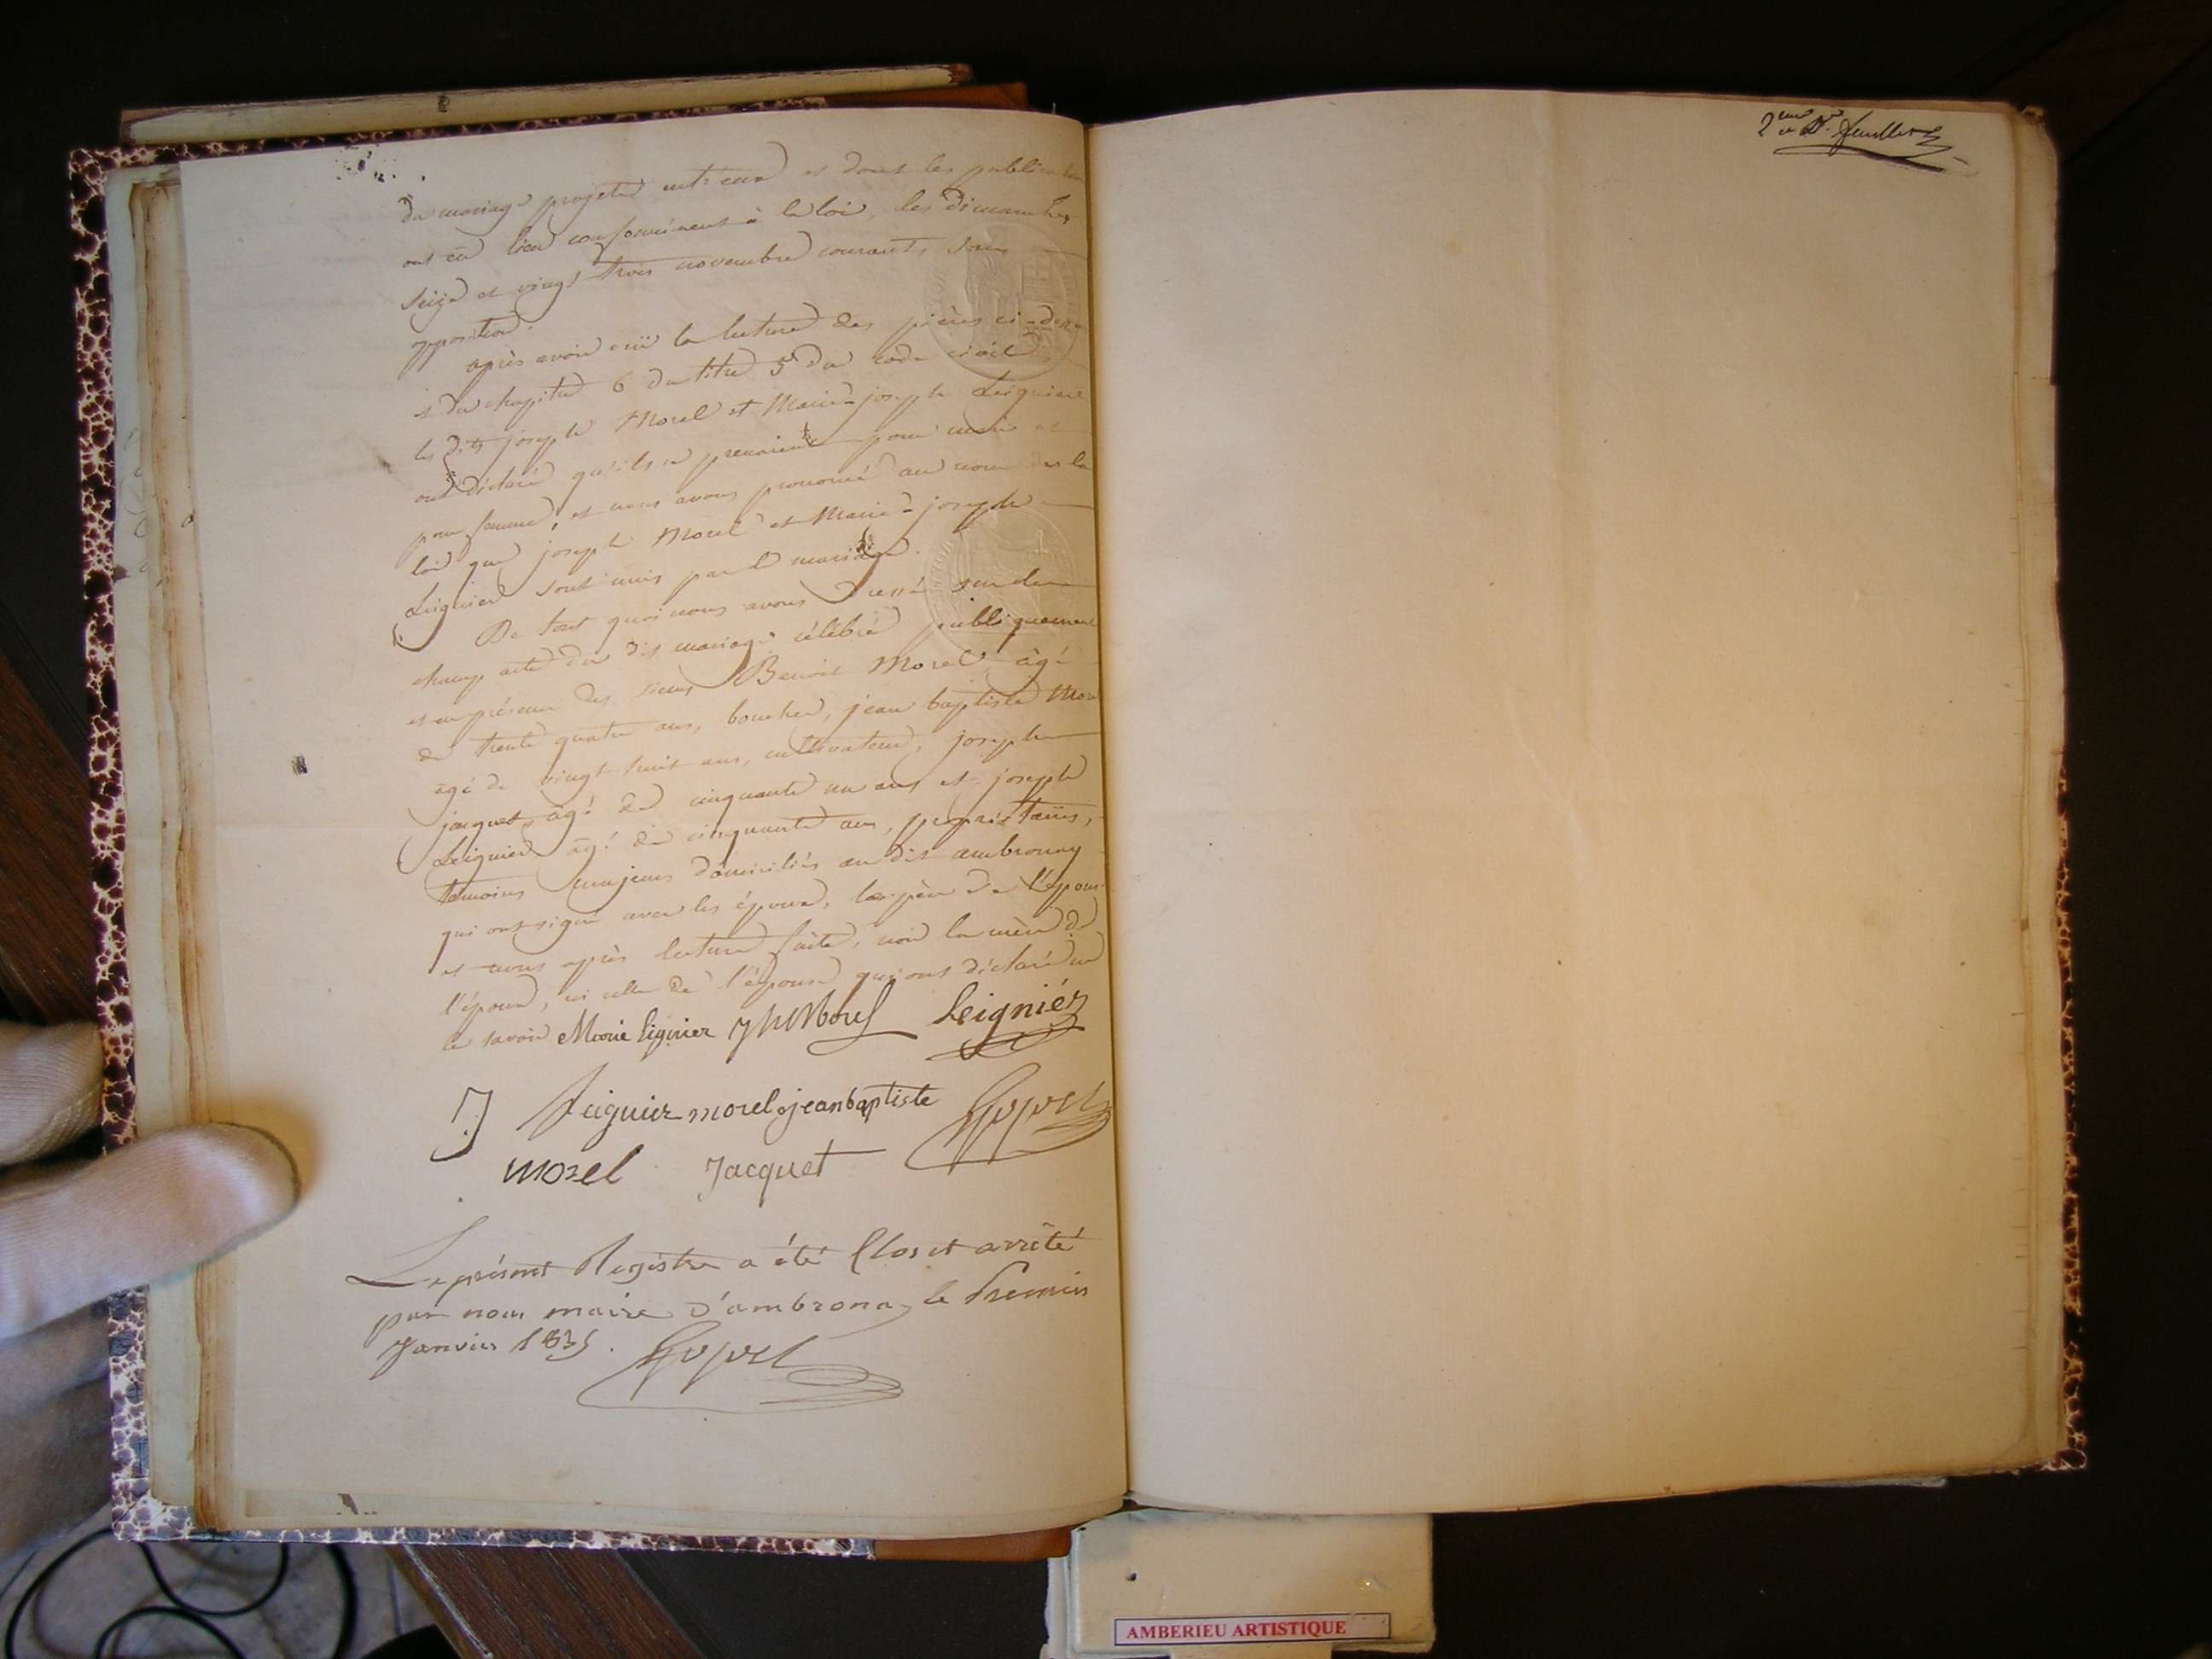 du mariage projetté entr'eux et dont les publications
ont eu lieu conformément à la loi, les dimanches
seize et vingt trois novembre courant, sans
opposition.
après avoir ouï la lecture des pièces ci-dessus
et du chapitre 6 du titre 5 du code civil
les dits joseph Morel et Marie-joseph Leignier
ont déclaré qu'ils se prenaient pour mari et
pour femme, et nous avons prononcé au nom de la
loi que joseph Morel et Marie-joseph
Leignier sont unis par le mariage.
De tout quoi nous avons dressé sur le
champ acte du dit mariage célébré publiquement
et en présence des sieurs Benoit Morel âgé
de trente quatre ans, boucher, jean baptiste Morel
âgé de vingt huit ans, cultivateur, joseph
jacquet, âgé de cinquante un ans et joseph
Leignier âgé de cinquante ans, propriétaires,
témoins majeurs domiciliés au dit ambronay
qui ont signé avec les époux, le père de l'épouse
et nous après lecture faite, non la mère de
l'époux, ni celle de l'épouse qui ont déclaré ne
le savoir Marie lignier Jh Morel Leignier
J Leignier morel jeanbaptiste
morel Jacquet
Le présent Registre a été Clos et arrêté
par nous maire d'ambronay le Premier
Janvier 1835.
2eme et Dr feuillet
AMBERIEU ARTISTIQUE